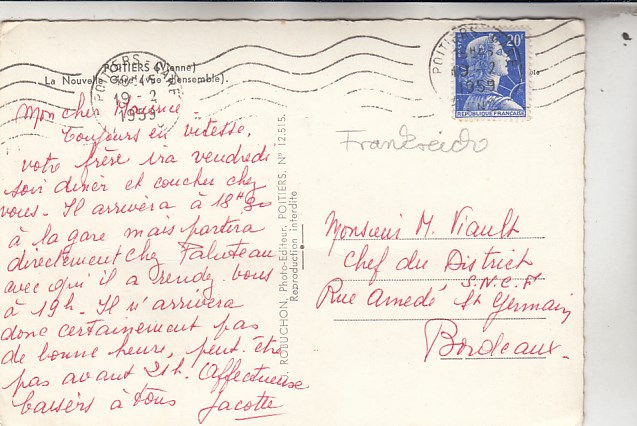 POITIERS (Vienne)
La Nouvelle Gare (vue d'ensemble).
POITIERS GARE
19-2
1959
POITIERS
19-2
1959
20F
REPUBLIQUE FRANÇAISE
Mon cher Maurice -
Toujours en vitesse,
votre frère ira vendredi
soir diner et coucher chez
vous. Il arrivera à 18H30
à la gare mais partira
directement chez Paluteau
avec qui il a rendez-vous
à 19h. Il n'arrivera
donc certainement pas
de bonne heure, peut-être
pas avant 21h. Affectueuse
baisers à tous Jacotte
J. ROBUCHON, Photo-Editeur, POITIERS. N° 12.515.
Reproduction interdite
Frankreich
Monsieur M. Viault
Chef du District
S.N.C.F.
Rue Amedé St Germain
Bordeaux-